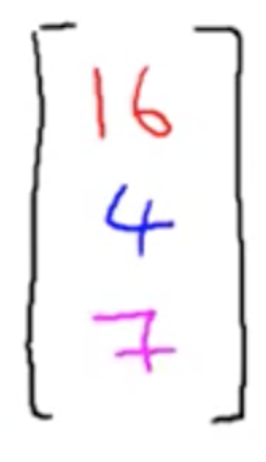 16
4
7